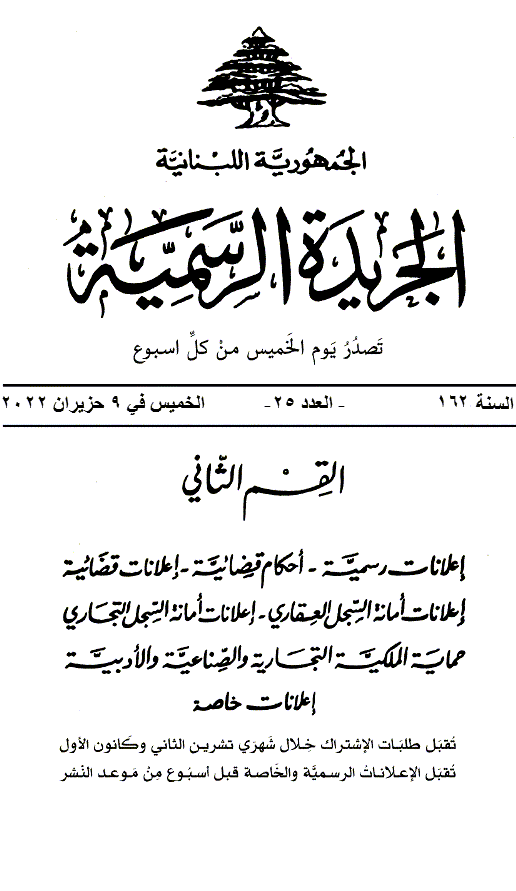 الجمهورية اللبنانية
الجريدة الرسمية
تَصدُرُ يَوم الخَميس منْ كلِّ اسبوع
السنة ١٦٢ - العدد ٢٥- الخميس في ٩ حزيران ٢٠٢٢
القِسْم الثّاني
إعلانات رسميَّة - أحكام قضائيَّة - إعلانات قضائية
إعلانات أمانة السِّجل العقاري - إعلانات أمانة السِّجل التجاري
حماية الملكيَّة التجارية والصِّناعيَّة والأدبيَّة
إعلانات خاصة
تُقبَل طلبَات الإشتراك خِلال شَهرَي تشرين الثاني وكَانون الأول
تُقبَل الإعلاناتُ الرسميَّة والخَاصة قبل أسبُوع مِنْ مَوعد النَشر